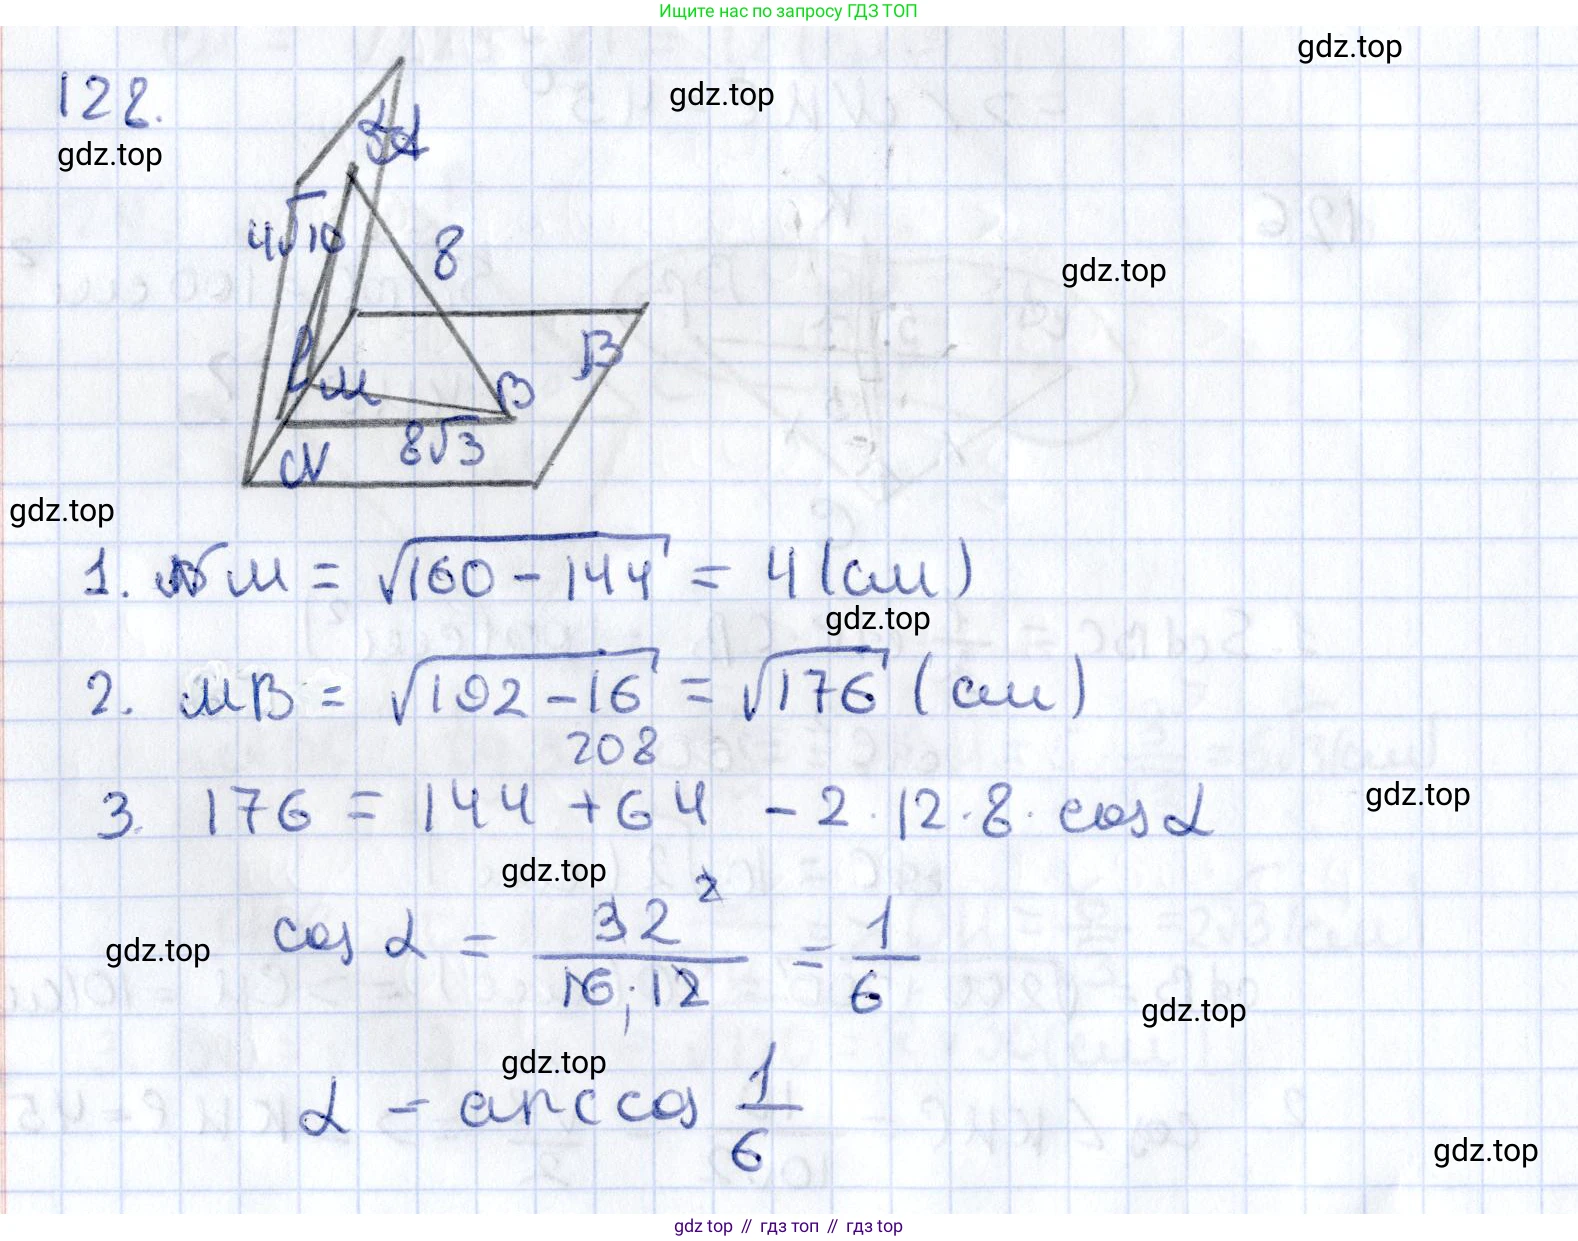 Ищите нас по запросу ГДЗ ТОП
gdz.top
gdz.top
122.
gdz.top
α
4√10
8
gdz.top
β
M
B
8√3
N
gdz.top
1. NM = √160 - 144 = 4 (см)
gdz.top
2. MB = √192 - 16 = √176 (см)
208
gdz.top
3. 176 = 144 + 64 - 2 · 12 · 8 · cos α
gdz.top
2
gdz.top
cos α = 32 / 16 · 12 = 1 / 6
gdz.top
gdz.top
α = arccos 1 / 6
gdz.top
gdz top // гдз топ // гдз top